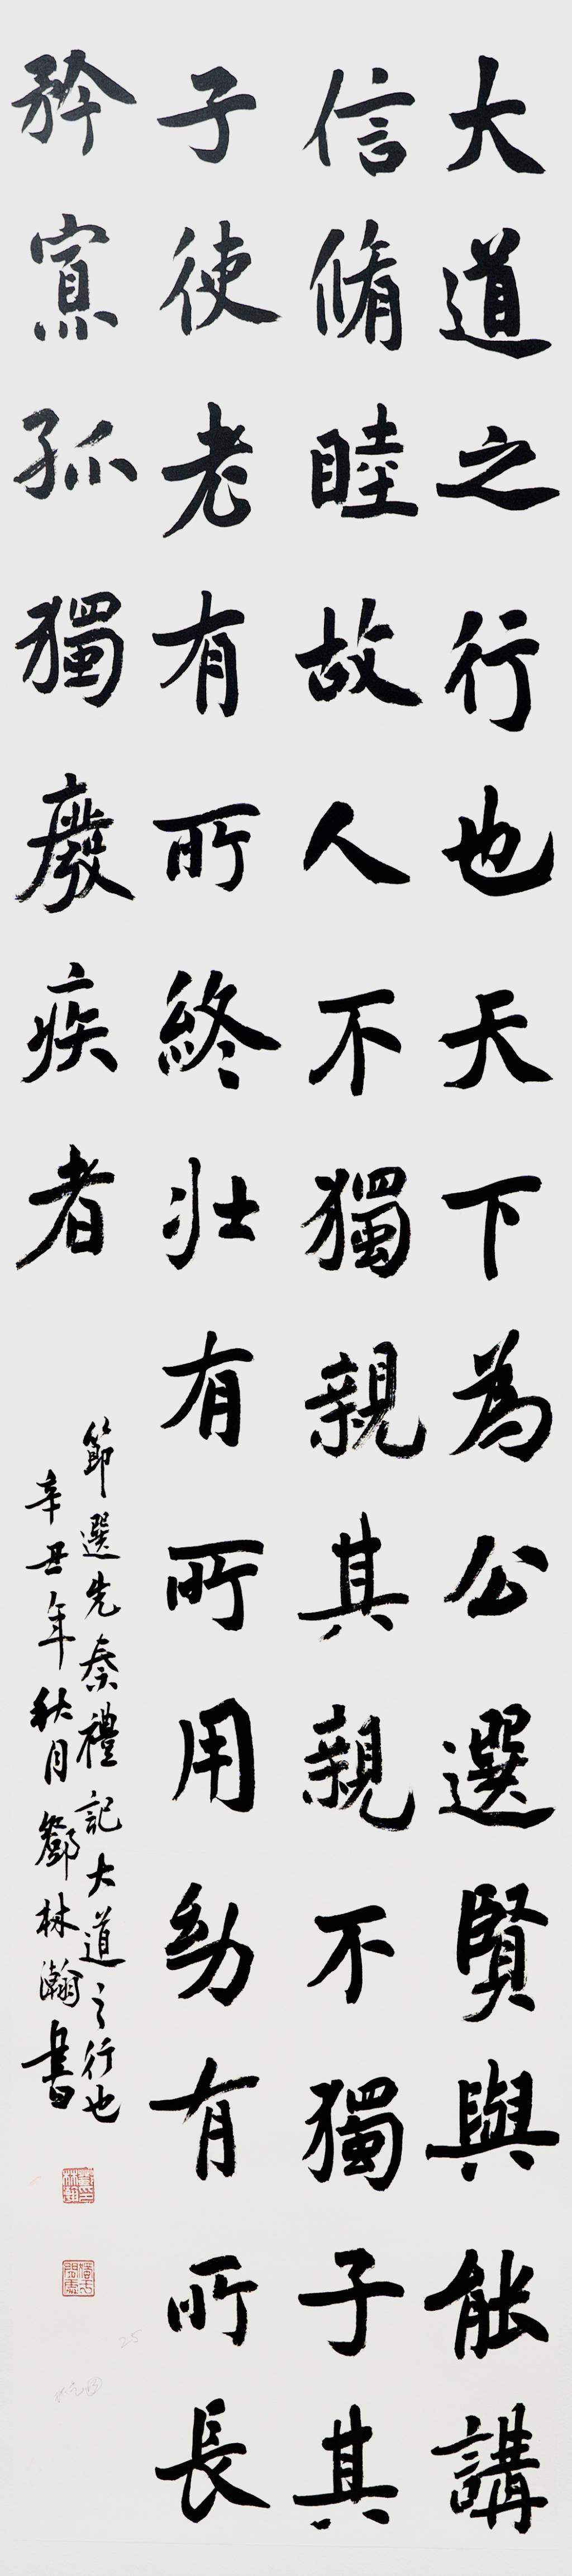 大道之行也天下為公選賢與能講
信脩睦故人不獨親其親不獨子其
子使老有所終壯有所用幼有所長
矜寡孤獨廢疾者
節選先秦禮記大道之行也
辛丑年秋月鄧林瀚書